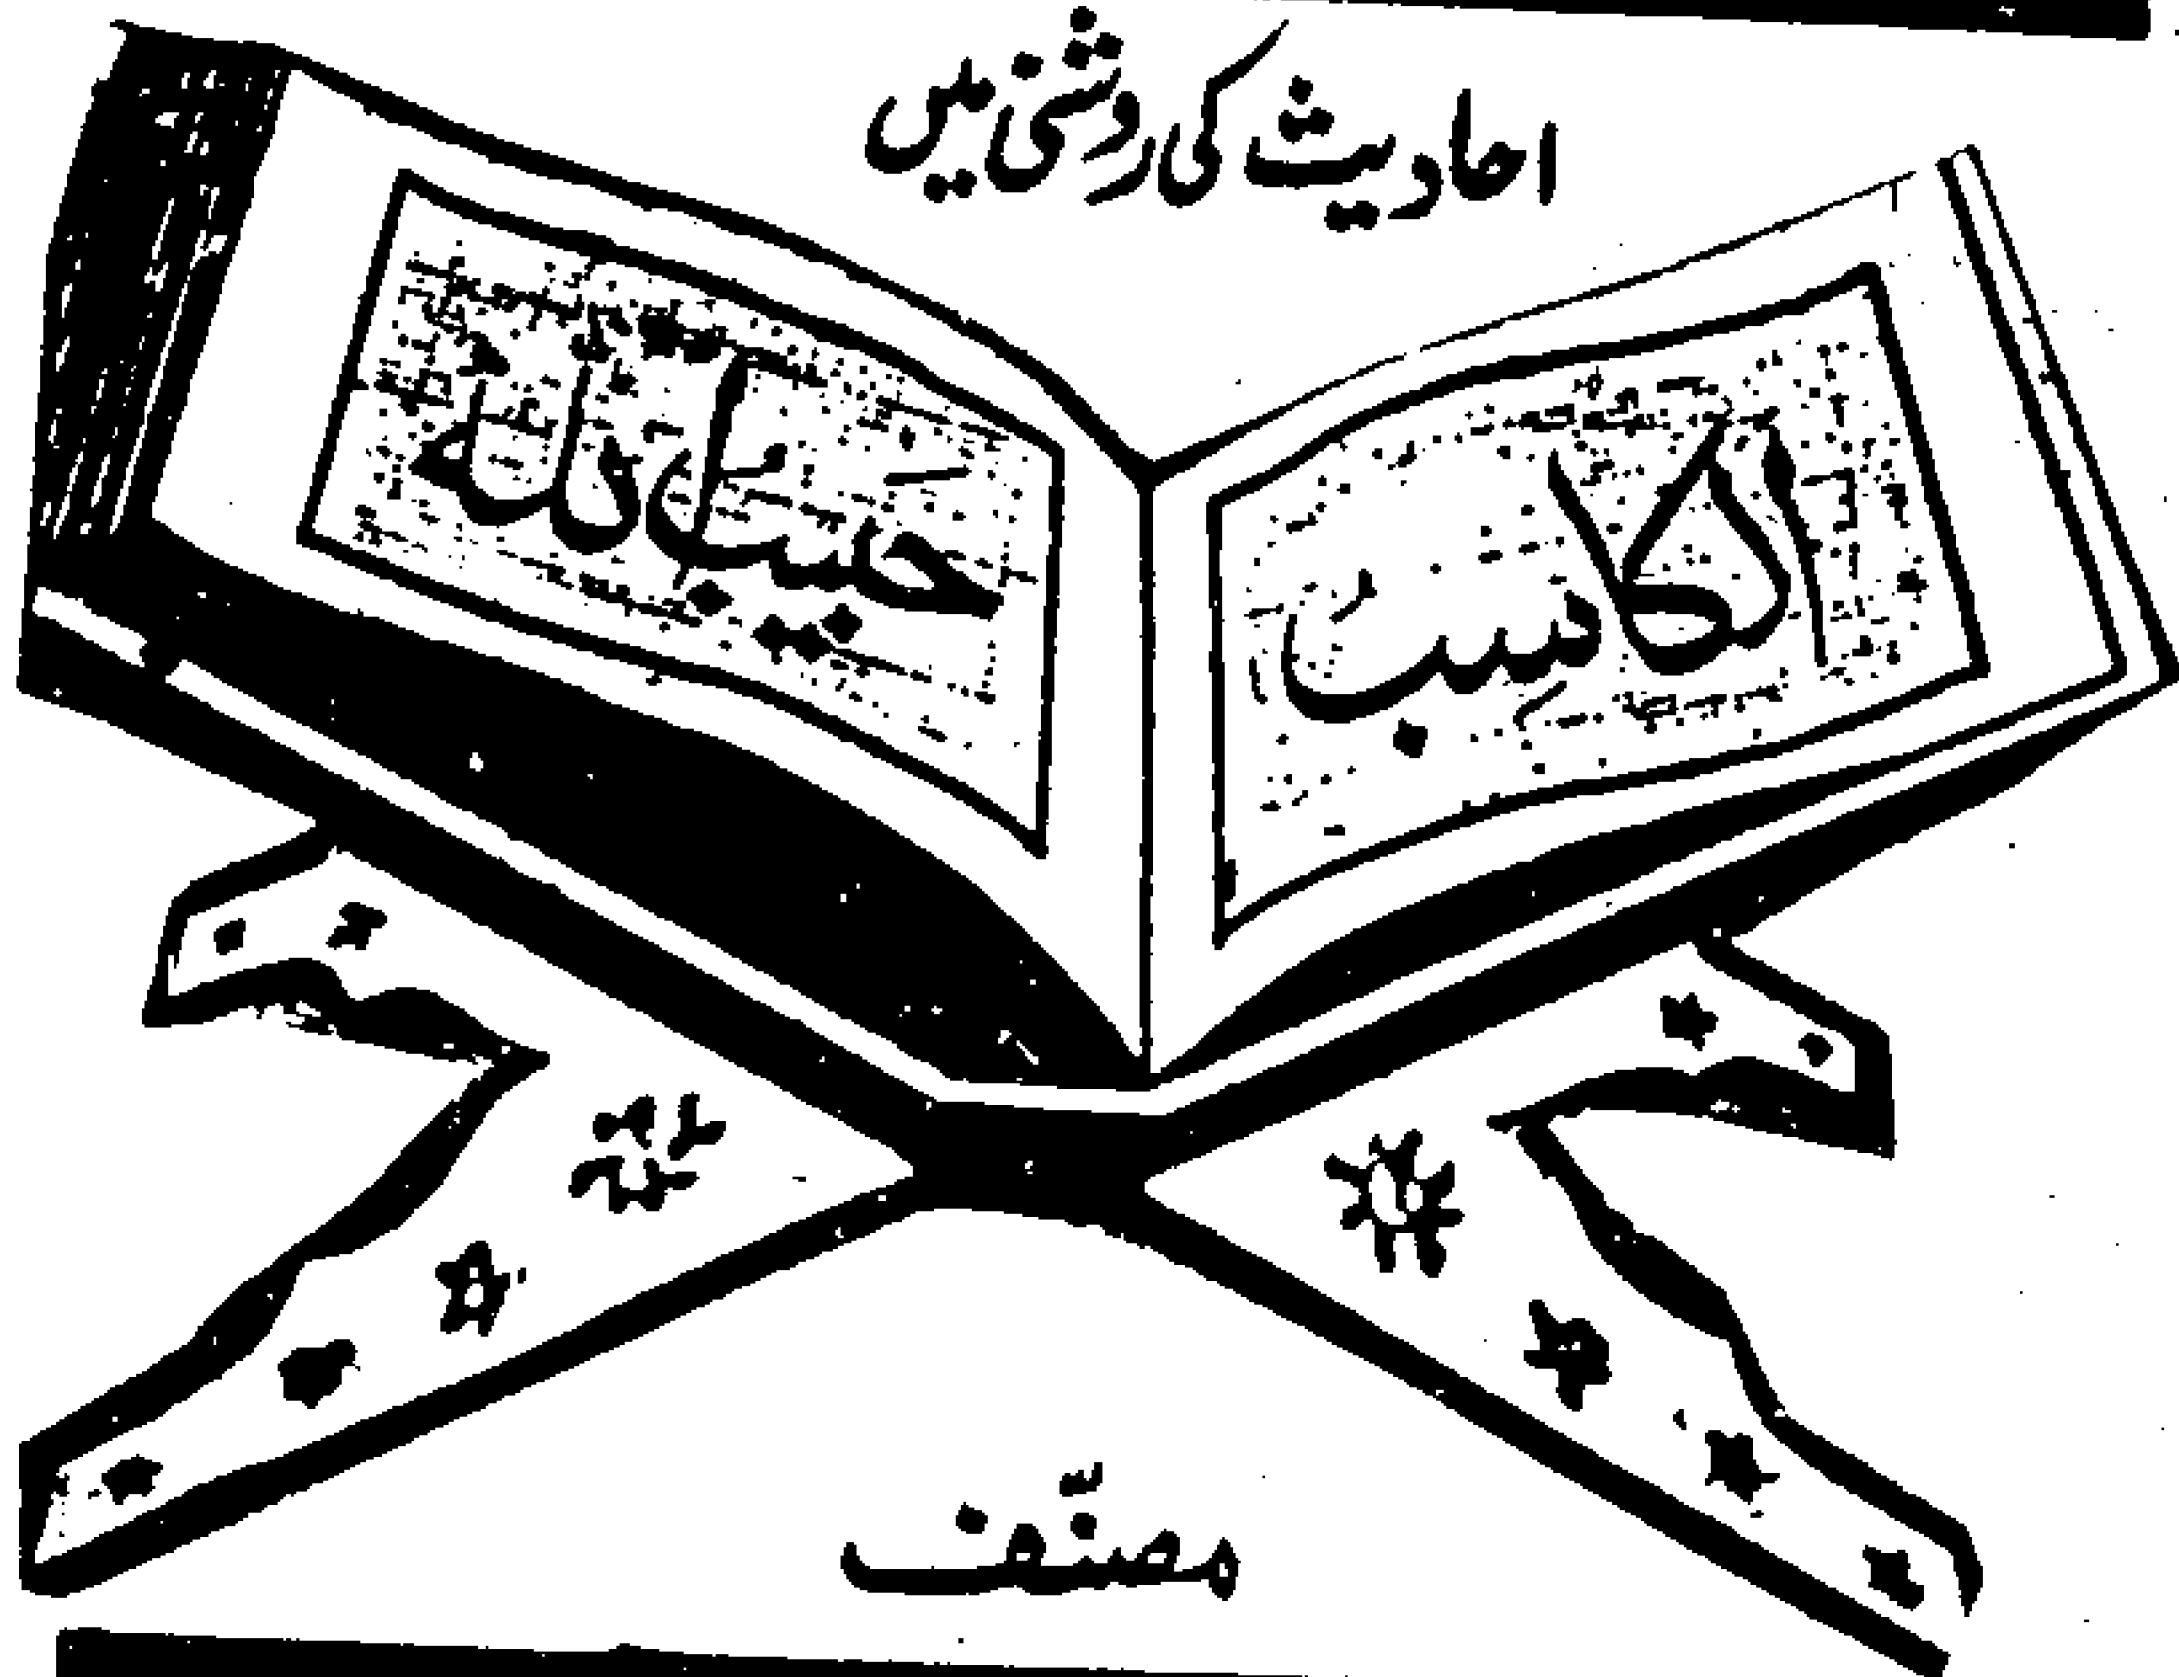 احادیث کی روشنی میں
الکاسِبُ
حَبِیْبُ اللہ
مصنّف